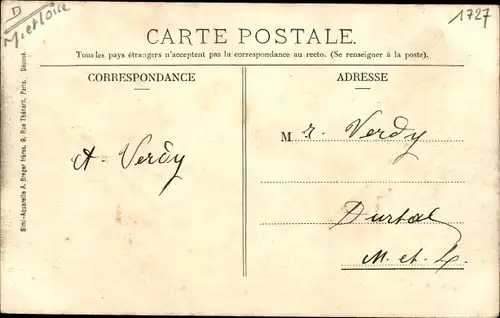 D
M. et Loire
1727
CARTE POSTALE.
Tous les pays étrangers n'acceptent pas la correspondance au recto. (Se renseigner à la poste).
CORRESPONDANCE
ADRESSE
A. Verdy
M r. Verdy
Durtal
M. et L.
Simi-Aquarelle A. Breger frères, 9, Rue Thénard, Paris. Déposé.